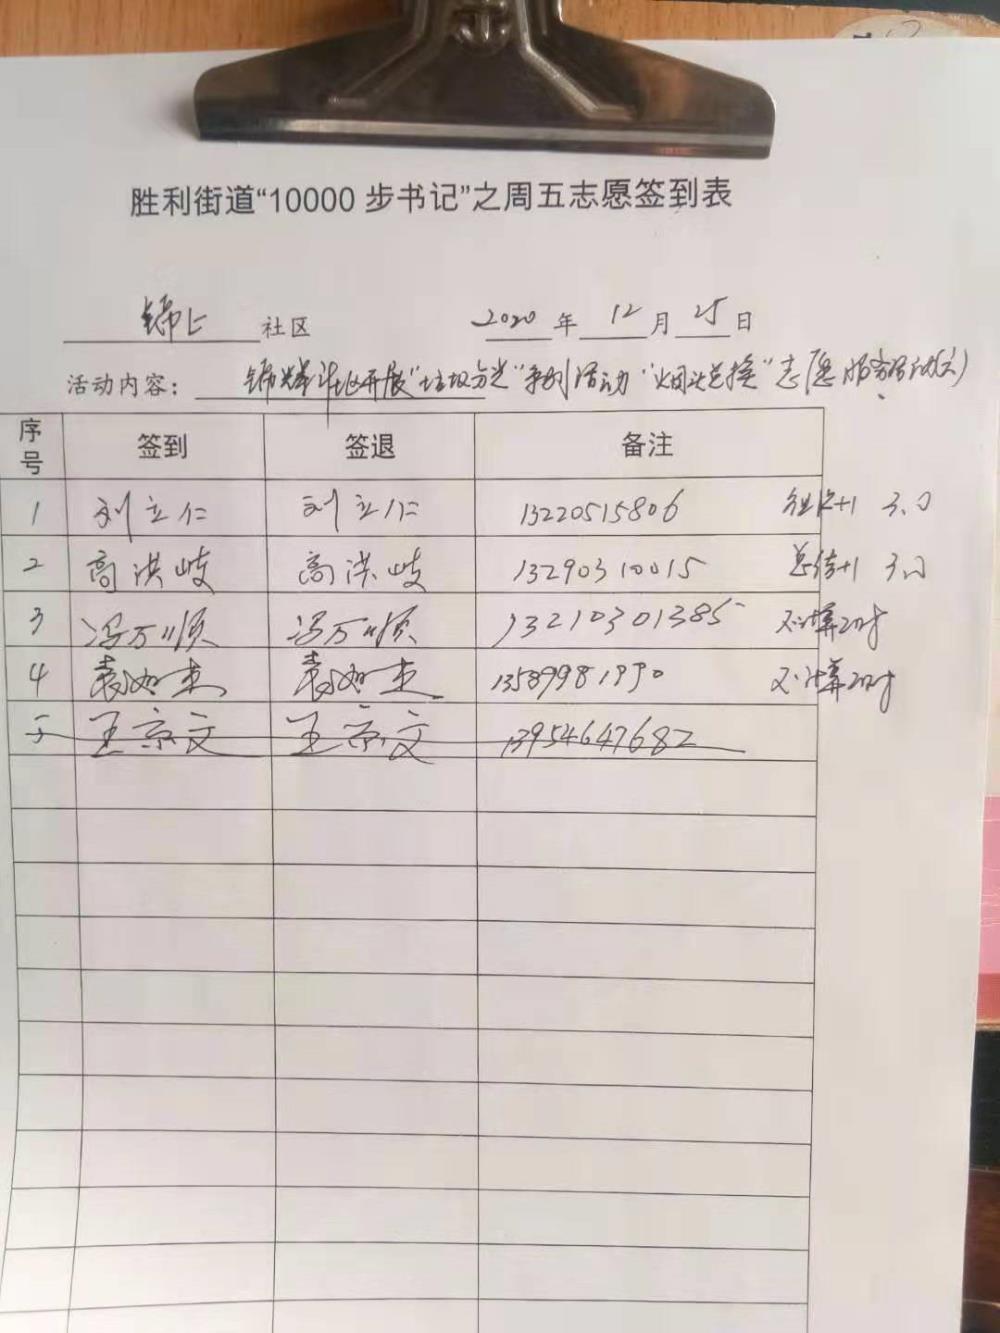 胜利街道“10000 步书记”之周五志愿签到表
锦上 社区 2020 年 12 月 25 日
活动内容： 社区开展“垃圾分类”系列活动“烟头兑换”志愿服务活动
序号 签到 签退 备注
1 刘立仁 刘立仁 13220515806 3.0
2 高洪岐 高洪岐 13290310015 总结+1 3.0
3 冯万顺 冯万顺 13210301385 不计算2小时
4 袁如杰 袁如杰 13589981990 不计算2小时
5 王京文 王京文 13954647682